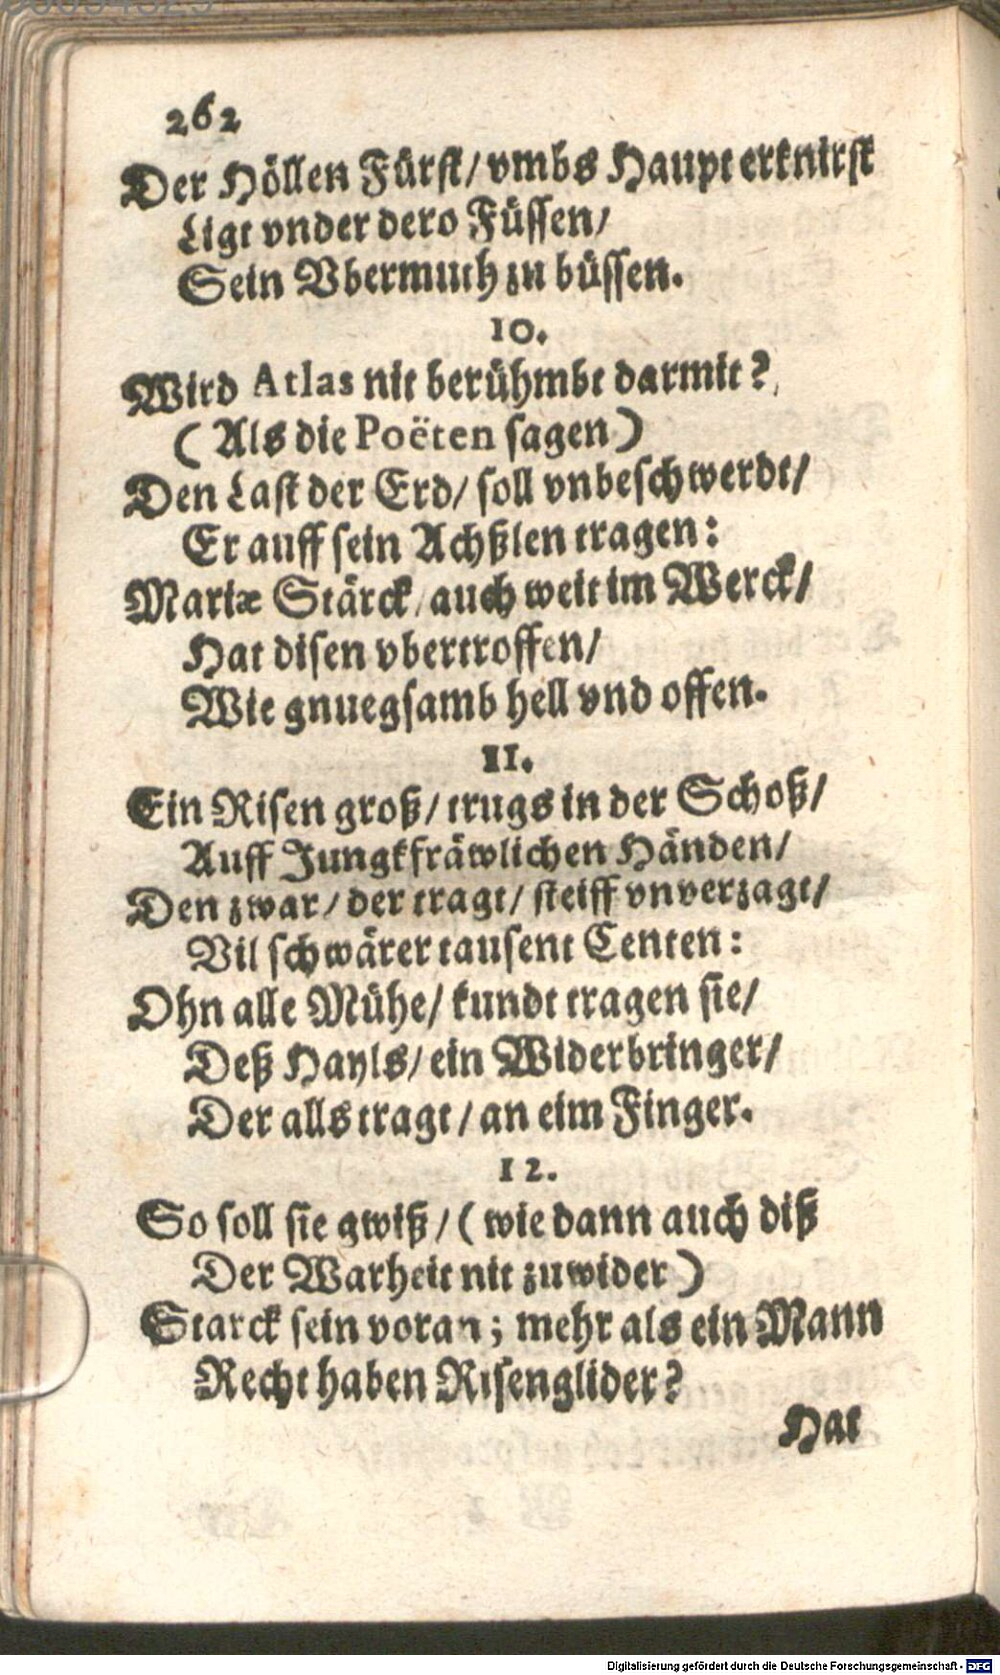 262
Der Höllen Fürst/ vmbs Haupt erknirst
Ligt vnder dero Füssen/
Sein Vbermuth zu büssen.
10.
Wird Atlas nit berühmbt darmit?
(Als die Poëten sagen)
Den Last der Erd/ soll vnbeschwerdt/
Er auff sein Achßlen tragen:
Mariæ Stärck/ auch weit im Werck/
Hat disen vbertroffen/
Wie gnuegsamb hell vnd offen.
11.
Ein Risen groß/ trugs in der Schoß/
Auff Jungkfräwlichen Händen/
Den zwar/ der tragt/ steiff vnverzagt/
Vil schwärer tausent Centen:
Ohn alle Mühe/ kundt tragen sie/
Deß Hayls/ ein Widerbringer/
Der alls tragt/ an eim Finger.
12.
So soll sie gwiß/ (wie dann auch diß
Der Warheit nit zuwider)
Starck sein voran; mehr als ein Mann
Recht haben Risenglider?
Hat
Digitalisierung gefördert durch die Deutsche Forschungsgemeinschaft - DFG